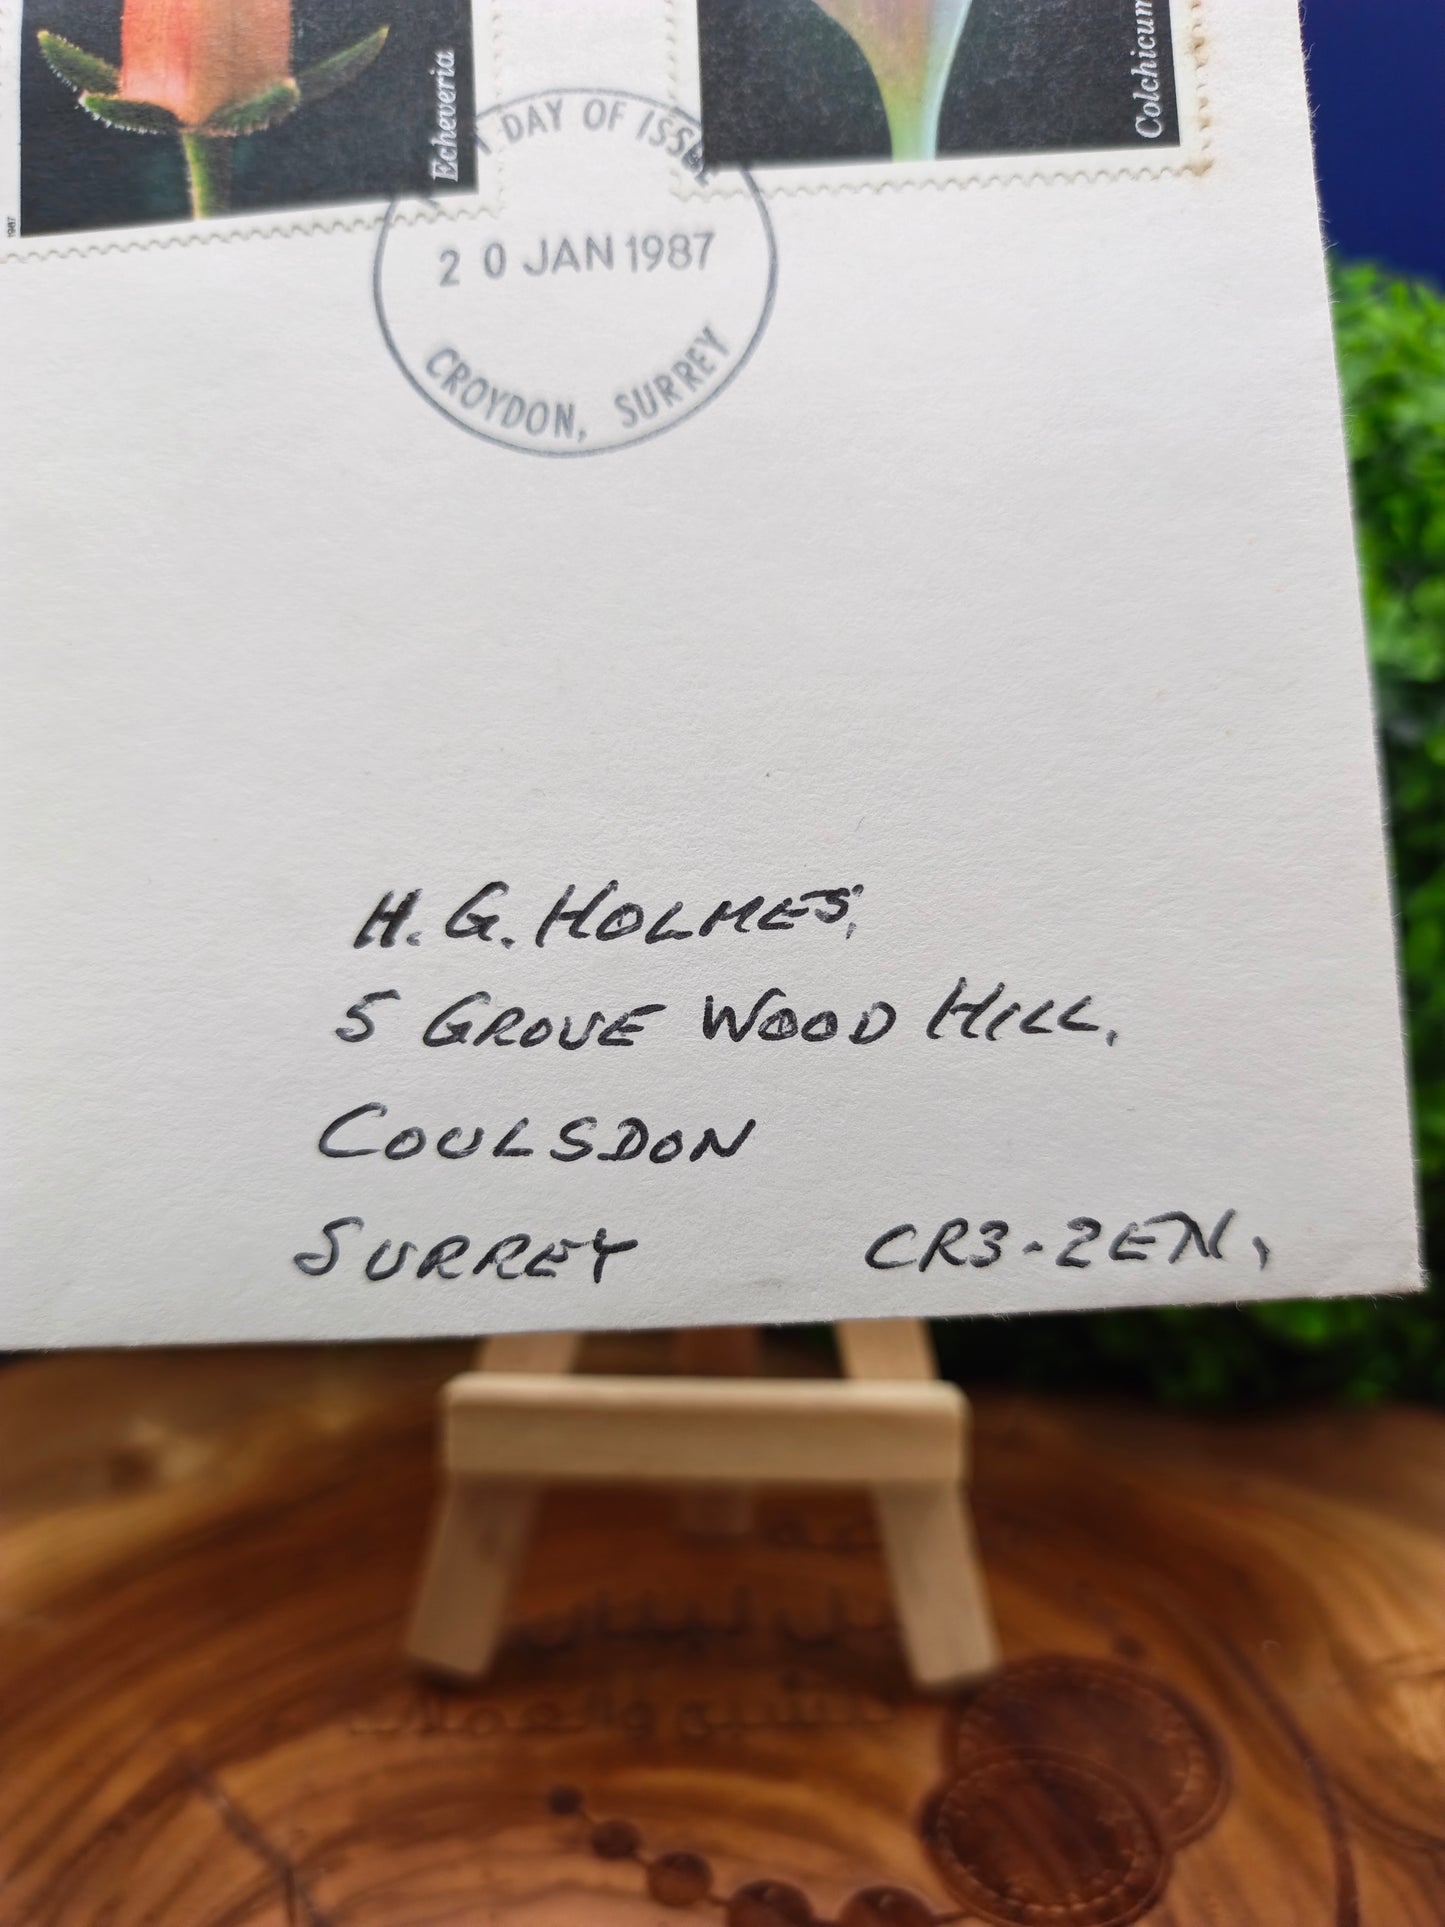 Echeveria
Colchicum
1987
DAY OF ISSUE
2 0 JAN 1987
CROYDON, SURREY
H. G. HOLMES,
5 GROVE WOOD HILL,
COULSDON
SURREY CR3-2EN,